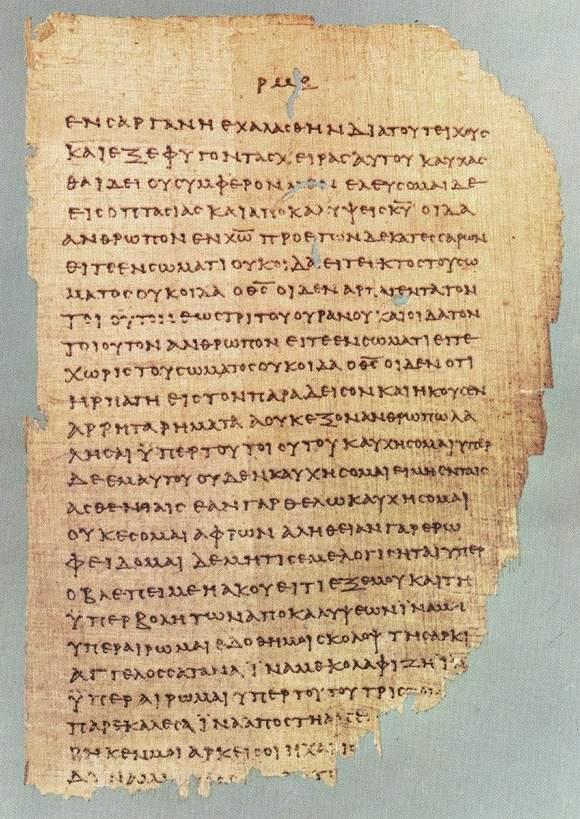 ρμε
ενϲαργανηεχαλαϲθηνδιατουτειχουϲ
καιεξεφυγονταϲχειραϲαυτουκαυχαϲ
θαιδειουϲυμφερον ελευϲομαιδε
ειϲοπταϲιαϲκαιαποκαλυψειϲκ̅υ̅οιδα
ανθρωπονενχ̅ω̅προετωνδεκατεϲϲαρων
ειτεενϲωματιουκοιδαειτεεκτοϲτουϲω
ματοϲουκοιδαοθ̅ϲ̅οιδεναρπαγεντατον
τοιουτονεωϲτριτουουρανουκαιοιδατον
τοιουτονανθρωπονειτεενϲωματιειτε
χωριϲτουϲωματοϲουκοιδαοθ̅ϲ̅οιδενοτι
ηρπαγηειϲτονπαραδειϲονκαιηκουϲεν
αρρηταρηματααουκεξονανθρωπωλα
ληϲαιϋπερτουτοιουτουκαυχηϲομαιυπερ
δεεμαυτουουδενκαυχηϲομαιειμηενταιϲ
αϲθενειαιϲεανγαρθελωκαυχηϲομαι
ουκεϲομαιαφρωναληθειανγαρερω
φειδομαιδεμητιϲεμελογιϲηταιυπερ
οβλεπειμεηακουειτιεξεμουκαιτη
ϋπερβολητωναποκαλυψεωνϊναμη
υπεραιρωμαιεδοθημοιϲκολοψτηϲαρκι
αγγελοϲϲαταναϊναμεκολαφιζηϊνα
ϋπεραιρωμαιυπερτουτουτριϲ
παρεκαλεϲαϊνααποϲτηα
ρηκενμοιαρκειϲοιηχαρι
δυναμι